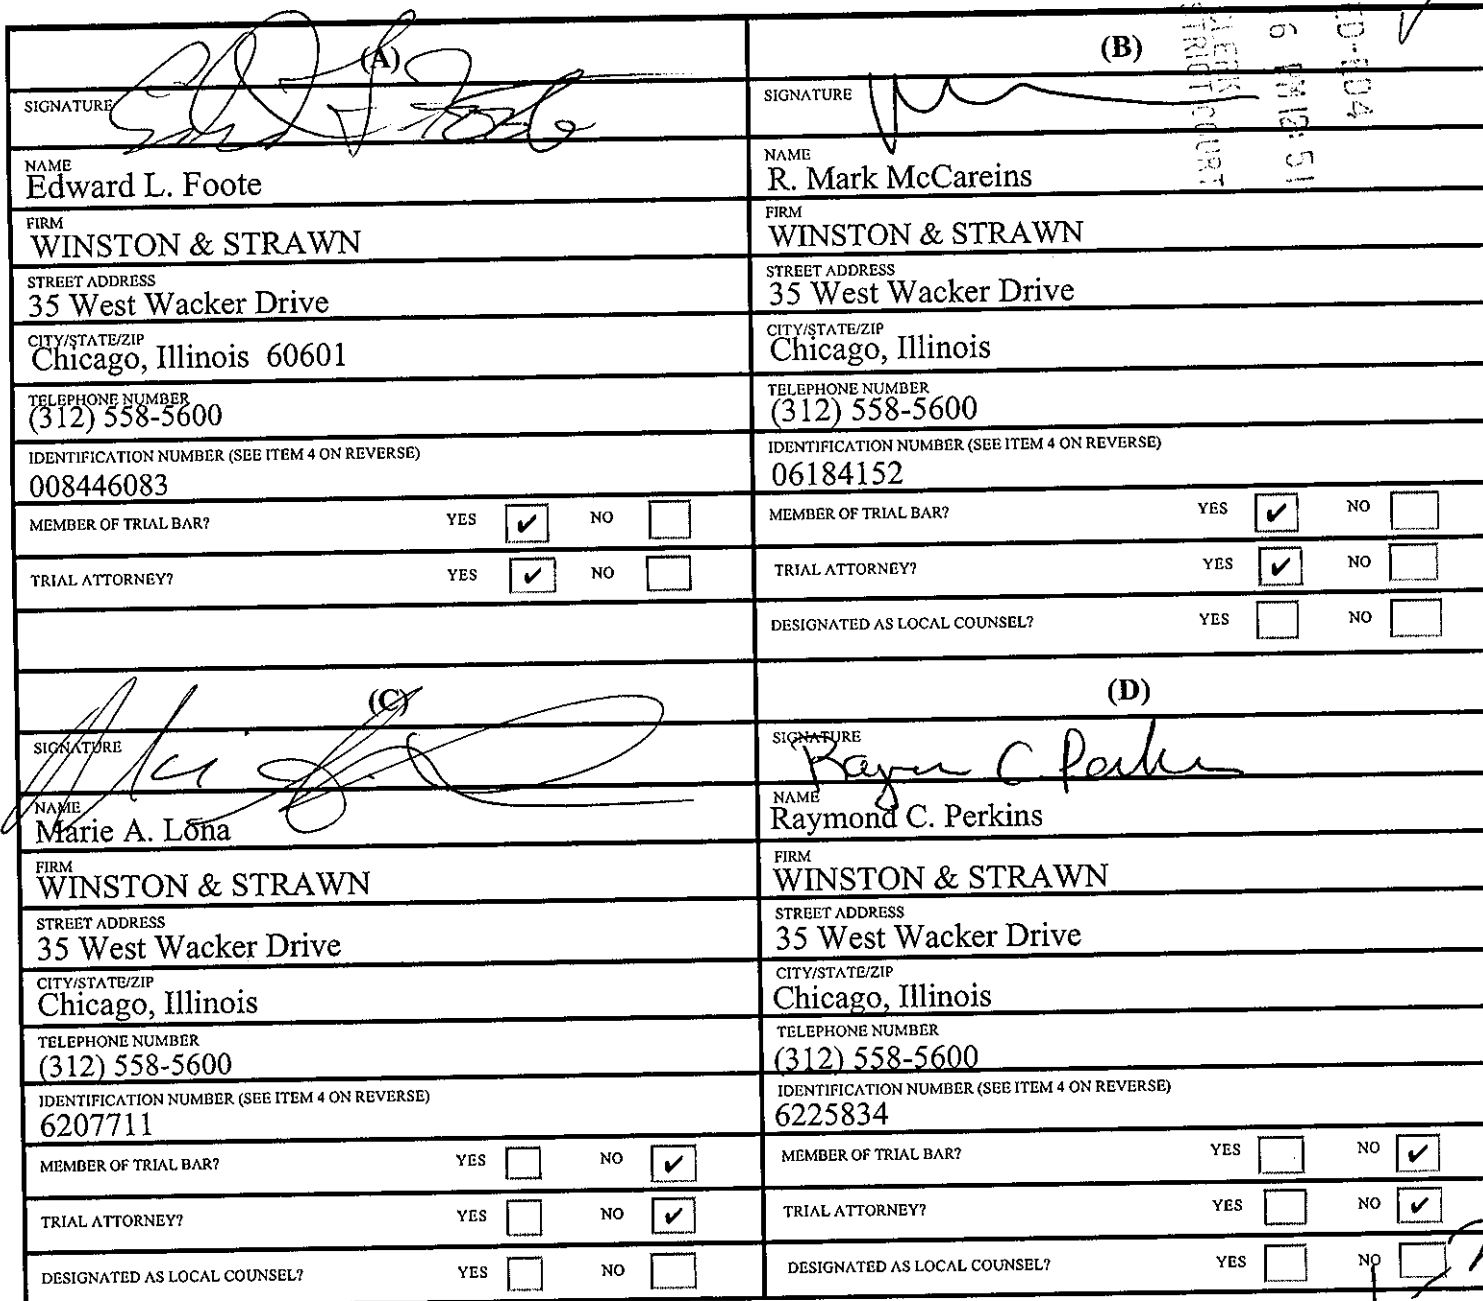 (A)
SIGNATURE Edward L. Foote
NAME
Edward L. Foote
FIRM
WINSTON & STRAWN
STREET ADDRESS
35 West Wacker Drive
CITY/STATE/ZIP
Chicago, Illinois 60601
TELEPHONE NUMBER
(312) 558-5600
IDENTIFICATION NUMBER (SEE ITEM 4 ON REVERSE)
008446083
MEMBER OF TRIAL BAR? YES ✔ NO
TRIAL ATTORNEY? YES ✔ NO
(B)
ED-ED4
6 PM 12:51
CLERK
STRICT COURT
SIGNATURE
NAME
R. Mark McCareins
FIRM
WINSTON & STRAWN
STREET ADDRESS
35 West Wacker Drive
CITY/STATE/ZIP
Chicago, Illinois
TELEPHONE NUMBER
(312) 558-5600
IDENTIFICATION NUMBER (SEE ITEM 4 ON REVERSE)
06184152
MEMBER OF TRIAL BAR? YES ✔ NO
TRIAL ATTORNEY? YES ✔ NO
DESIGNATED AS LOCAL COUNSEL? YES NO
(C)
SIGNATURE
NAME
Marie A. Lona
FIRM
WINSTON & STRAWN
STREET ADDRESS
35 West Wacker Drive
CITY/STATE/ZIP
Chicago, Illinois
TELEPHONE NUMBER
(312) 558-5600
IDENTIFICATION NUMBER (SEE ITEM 4 ON REVERSE)
6207711
MEMBER OF TRIAL BAR? YES NO ✔
TRIAL ATTORNEY? YES NO ✔
DESIGNATED AS LOCAL COUNSEL? YES NO
(D)
SIGNATURE Raymond C. Perkins
NAME
Raymond C. Perkins
FIRM
WINSTON & STRAWN
STREET ADDRESS
35 West Wacker Drive
CITY/STATE/ZIP
Chicago, Illinois
TELEPHONE NUMBER
(312) 558-5600
IDENTIFICATION NUMBER (SEE ITEM 4 ON REVERSE)
6225834
MEMBER OF TRIAL BAR? YES NO ✔
TRIAL ATTORNEY? YES NO ✔
DESIGNATED AS LOCAL COUNSEL? YES NO